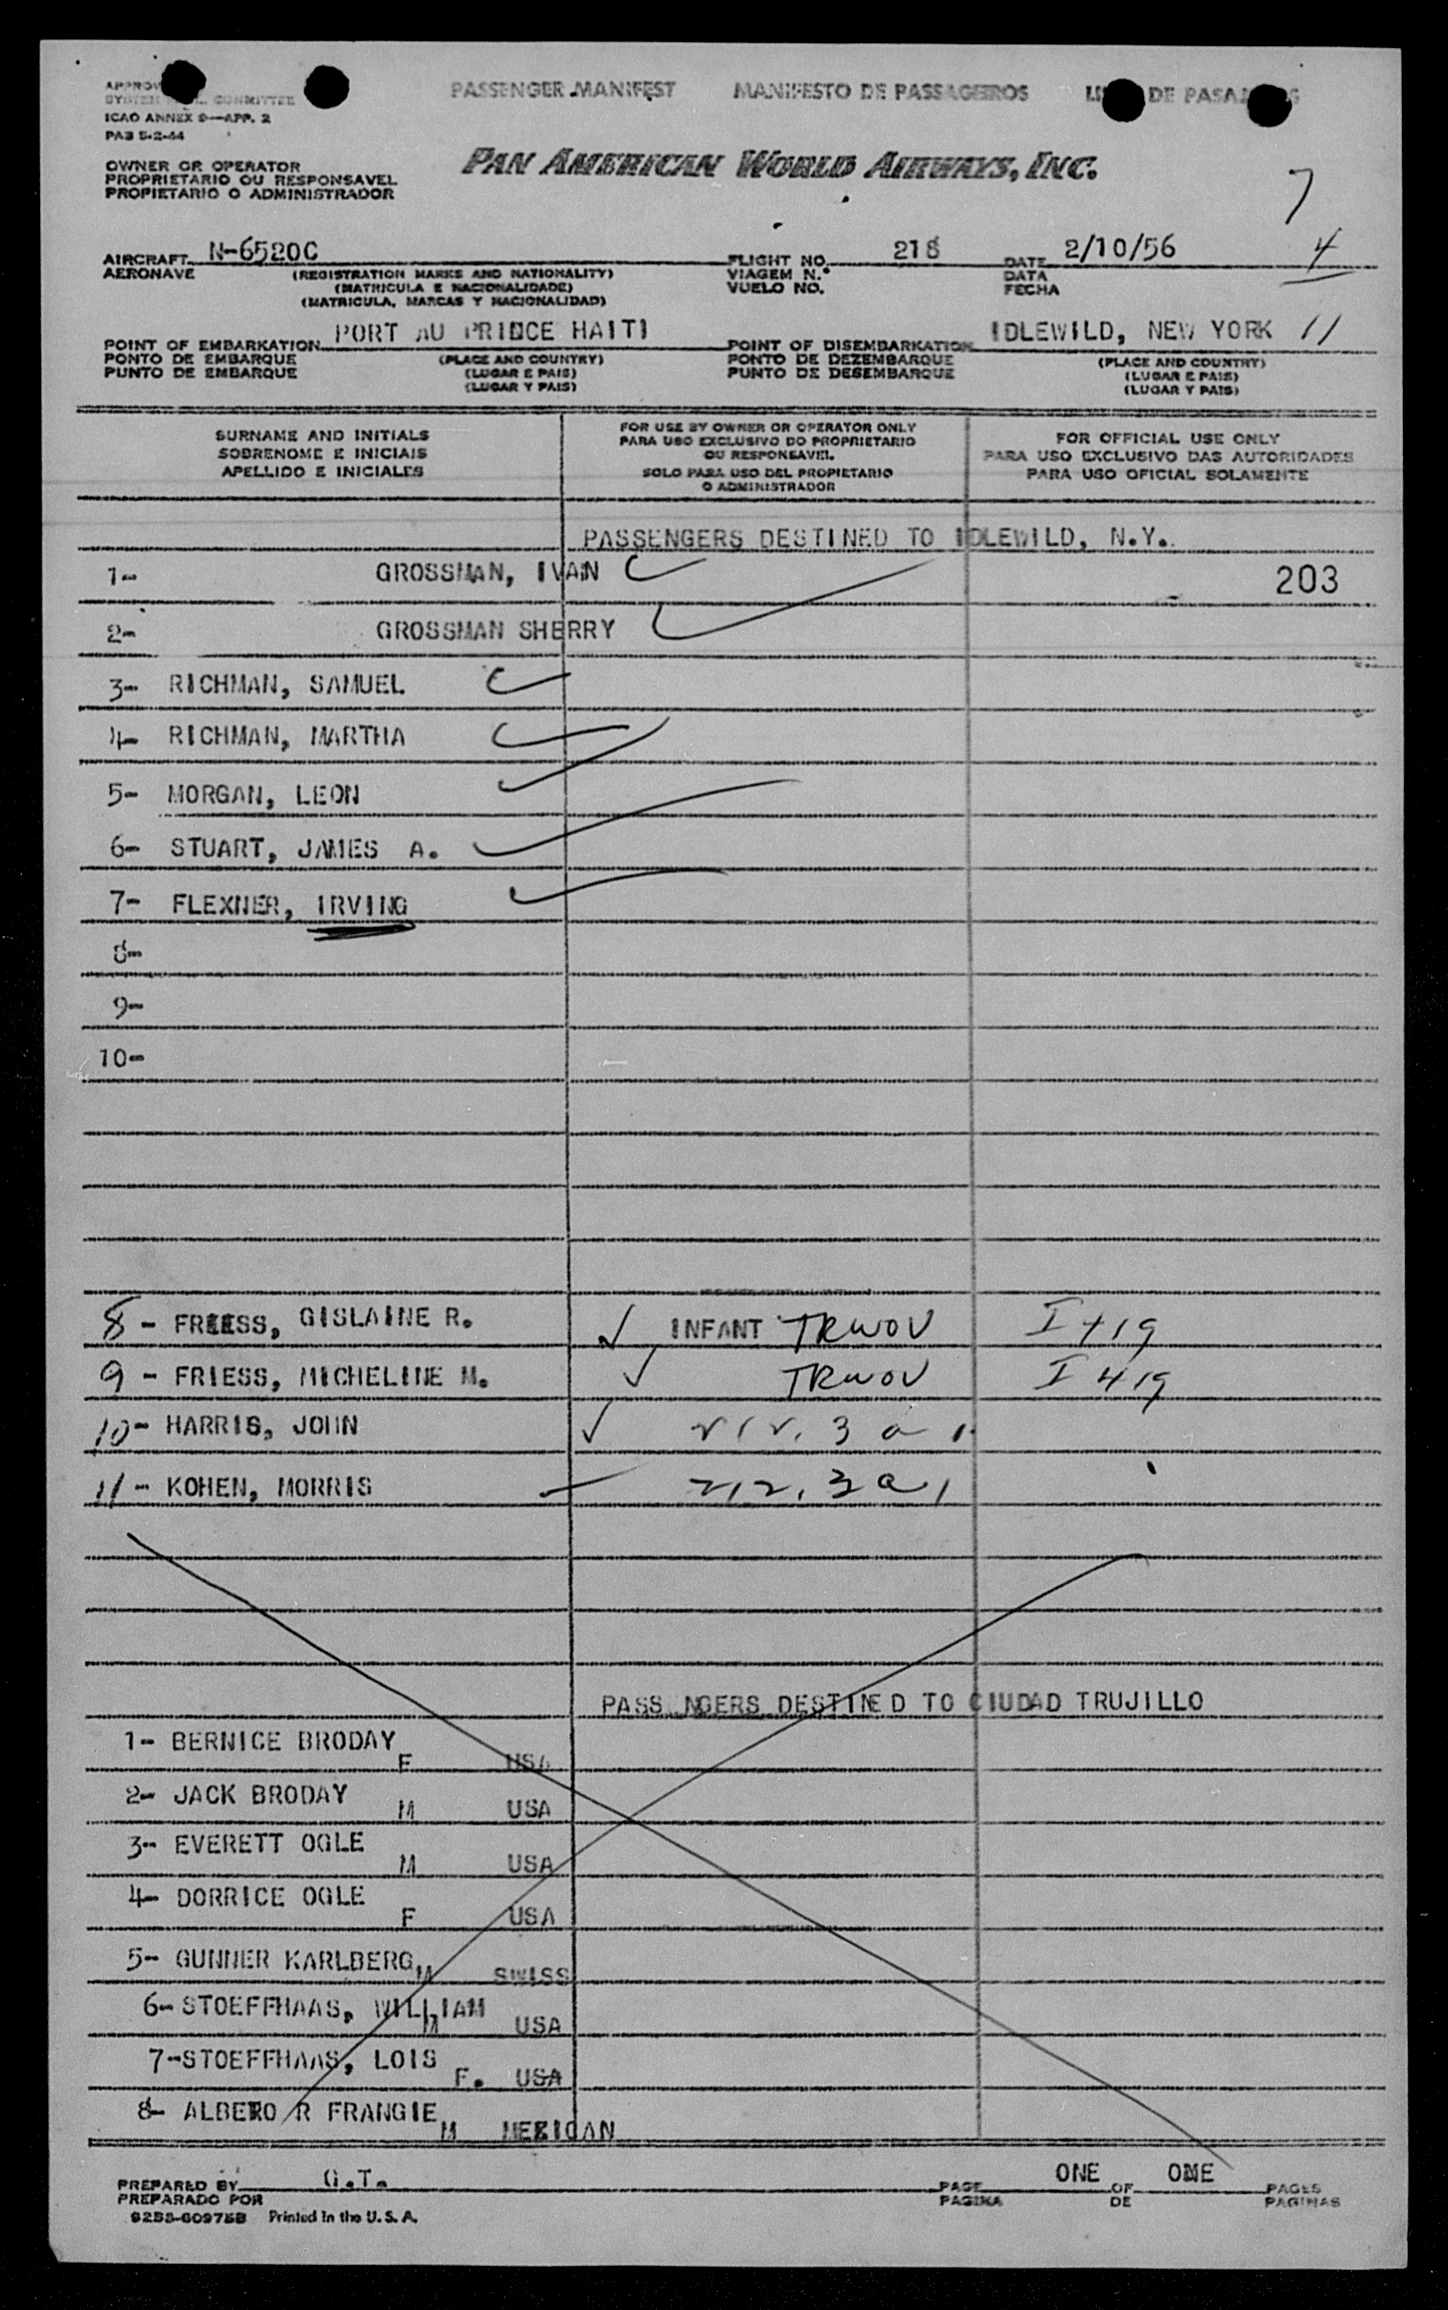 PASSENGER MANIFEST MANIFESTO DE PASSAGEIROS DE
COMMITTEE
ICAO ANNEX 9—APP. 2
PAB 5-2-44
OWNER OR OPERATOR
PROPRIETARIO OU RESPONSAVEL
PROPIETARIO O ADMINISTRADOR
PAN AMERICAN WORLD AIRWAYS, INC.
7
4
AIRCRAFT N-6520C FLIGHT NO. 218 DATE 2/10/56
AERONAVE (REGISTRATION MARKS AND NATIONALITY) VIAGEM N.° DATA
(MATRICULA E NACIONALIDADE) VUELO NO. FECHA
(MATRICULA, MARCAS Y NACIONALIDAD)
POINT OF EMBARKATION PORT AU PRINCE HAITI POINT OF DISEMBARKATION IDLEWILD, NEW YORK 11
PONTO DE EMBARQUE (PLACE AND COUNTRY) PONTO DE DEZEMBARQUE (PLACE AND COUNTRY)
PUNTO DE EMBARQUE (LUGAR E PAIS) PUNTO DE DESEMBARQUE (LUGAR E PAIS)
(LUGAR Y PAIS) (LUGAR Y PAIS)
SURNAME AND INITIALS
SOBRENOME E INICIAIS
APELLIDO E INICIALES
FOR USE BY OWNER OR OPERATOR ONLY
PARA USO EXCLUSIVO DO PROPRIETARIO
OU RESPONSAVEL
SOLO PARA USO DEL PROPIETARIO
O ADMINISTRADOR
FOR OFFICIAL USE ONLY
PARA USO EXCLUSIVO DAS AUTORIDADES
PARA USO OFICIAL SOLAMENTE
PASSENGERS DESTINED TO IDLEWILD, N.Y..
1- GROSSMAN, IVAN 203
2- GROSSMAN SHERRY
3- RICHMAN, SAMUEL
4- RICHMAN, MARTHA
5- MORGAN, LEON
6- STUART, JAMES A.
7- FLEXNER, IRVING
8-
9-
10-
8 - GISLAINE R. ✓ INFANT TRWOV I 419
9 - FRIESS, MICHELINE M. ✓ TRWOV I 419
10- HARRIS, JOHN ✓ 212. 3 a 1
11- KOHEN, MORRIS 212. 3 a 1
PASS NGERS DESTINED TO CIUDAD TRUJILLO
1- BERNICE BRODAY F USA
2- JACK BRODAY M USA
3- EVERETT OGLE M USA
4- DORRICE OGLE F USA
5- GUNNER KARLBERG M SWISS
6- STOEFFHAAS, WILLIAM M USA
7-STOEFFHAAS, LOIS F. USA
8- ALBERO R FRANGIE M MEXICAN
PREPARED BY G.T. PAGE ONE OF ONE PAGES
PREPARADO POR PAGINA DE PAGINAS
Printed in the U. S. A.